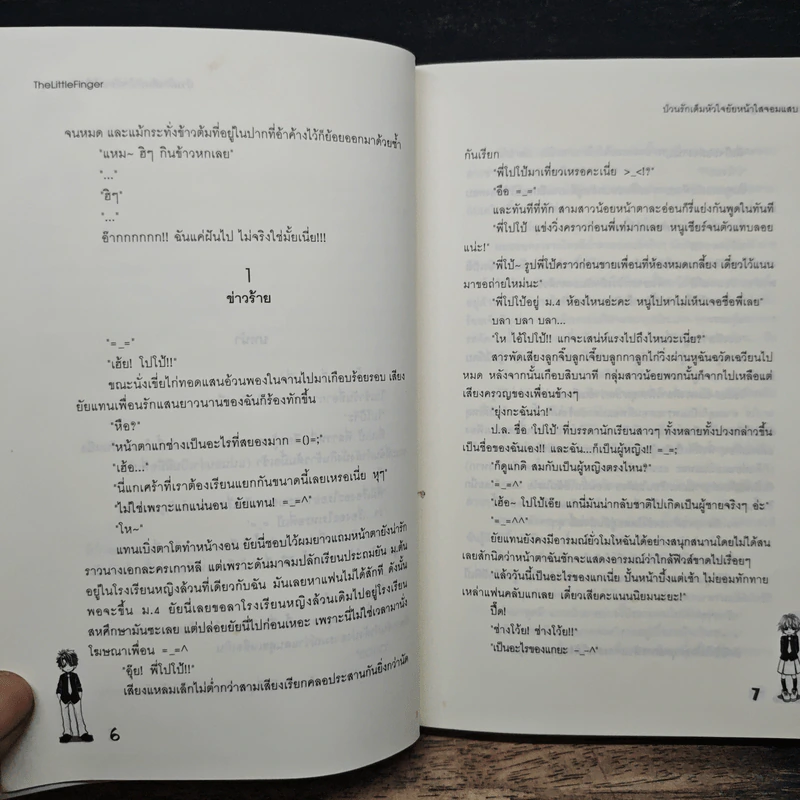 TheLittleFinger
จนหมด และแม้กระทั่งข้าวต้มที่อยู่ในปากที่อ้าค้างไว้ก็ย้อยออกมาด้วยซ้ำ
"แหม~ ฮิๆ กินข้าวหกเลย"
"..."
"ฮิๆ"
"..."
อ๊ากกกกกก!! ฉันแค่ฝันไป ไม่จริงใช่มั้ยเนี่ย!!!
1
ข่าวร้าย
"=_="
"เฮ้ย! โปโป้!!"
ขณะนั่งเขี่ยไก่ทอดแสนอ้วนพองในจานไปมาเกือบร้อยรอบ เสียง
ยัยแทนเพื่อนรักแสนยาวนานของฉันก็ร้องทักขึ้น
"หือ?"
"หน้าตาแกช่างเป็นอะไรที่สยองมาก =()=;"
"เฮ้อ..."
"นี่แกเศร้าที่เราต้องเรียนแยกกันขนาดนี้เลยเหรอเนี่ย หุๆ"
"ไม่ใช่เพราะแกแน่นอน ยัยแทน! =_=^"
"โห~"
แทนเบิ่งตาโตทำหน้างอน ยัยนี่ชอบไว้ผมยาวแถมหน้าตายังน่ารัก
ราวนางเอกละครเกาหลี แต่เพราะดันมาจมปลักเรียนประถมยัน ม.ต้น
อยู่ในโรงเรียนหญิงล้วนที่เดียวกับฉัน มันเลยหาแฟนไม่ได้สักที ดังนั้น
พอจะขึ้น ม.4 ยัยนี่เลยขอลาโรงเรียนหญิงล้วนเดิมไปอยู่โรงเรียน
สหศึกษามันซะเลย แต่ปล่อยยัยนี่ไปก่อนเหอะ เพราะนี่ไม่ใช่เวลามานั่ง
โฆษณาเพื่อน =_=^
"อุ๊ย! พี่โปโป้!!"
เสียงแหลมเล็กไม่ต่ำกว่าสามเสียงเรียกคลอประสานกันยิ่งกว่านัด
6
ป่วนรักเต็มหัวใจยัยหน้าใสจอมแสบ
กันเรียก
"พี่โปโป้มาเที่ยวเหรอคะเนี่ย >_<!?"
"อือ =_="
และทันทีที่ทัก สามสาวน้อยหน้าตาละอ่อนก็รี่แย่งกันพูดในทันที
"พี่โปโป้ แข่งวิ่งคราวก่อนพี่เท่มากเลย หนูเชียร์จนตัวแทบลอย
แน่ะ!"
"พี่โป้~ รูปพี่โป้คราวก่อนขายเพื่อนที่ห้องหมดเกลี้ยง เดี๋ยวไว้แนน
มาขอถ่ายใหม่นะ"
"พี่โปโป้อยู่ ม.4 ห้องไหนอ่ะคะ หนูไปหาไม่เห็นเจอชื่อพี่เลย"
บลา บลา บลา...
"โห ไอ้โปโป้!! แกจะเสน่ห์แรงไปถึงไหนวะเนี่ย?"
สารพัดเสียงลูกจิ๊บลูกเจี๊ยบลูกกาลูกไก่วิ่งผ่านหูฉันฉวัดเฉวียนไป
หมด หลังจากนั้นเกือบสิบนาที กลุ่มสาวน้อยพวกนั้นก็จากไปเหลือแต่
เสียงครวญของเพื่อนข้างๆ
"ยุ่งกะฉันน่า!"
ป.ล. ชื่อ 'โปโป้' ที่บรรดานักเรียนสาวๆ ทั้งหลายทั้งปวงกล่าวขึ้น
เป็นชื่อของฉันเอง!! และฉัน...ก็เป็นผู้หญิง!! =_=;
"ก็ดูแกดิ สมกับเป็นผู้หญิงตรงไหน?"
"=_=^"
"เฮ้อ~ โปโป้เอ๊ย แกนี่มันน่ากลับชาติไปเกิดเป็นผู้ชายจริงๆ อ่ะ"
"=_=^^"
ยัยแทนยังคงมีอารมณ์ยั่วโมโหฉันได้อย่างสนุกสนานโดยไม่ได้สน
เลยสักนิดว่าหน้าตาฉันชักจะแสดงอารมณ์ว่าใกล้ฟิวส์ขาดไปเรื่อยๆ
"แล้ววันนี้เป็นอะไรของแกเนี่ย ปั้นหน้าบึ้งแต่เช้า ไม่ยอมทักทาย
เหล่าแฟนคลับแกเลย เดี๋ยวเสียคะแนนนิยมนะยะ!"
ปึ้ด!
"ช่างโว้ย! ช่างโว้ย!!"
"เป็นอะไรของแกยะ =_=^"
7